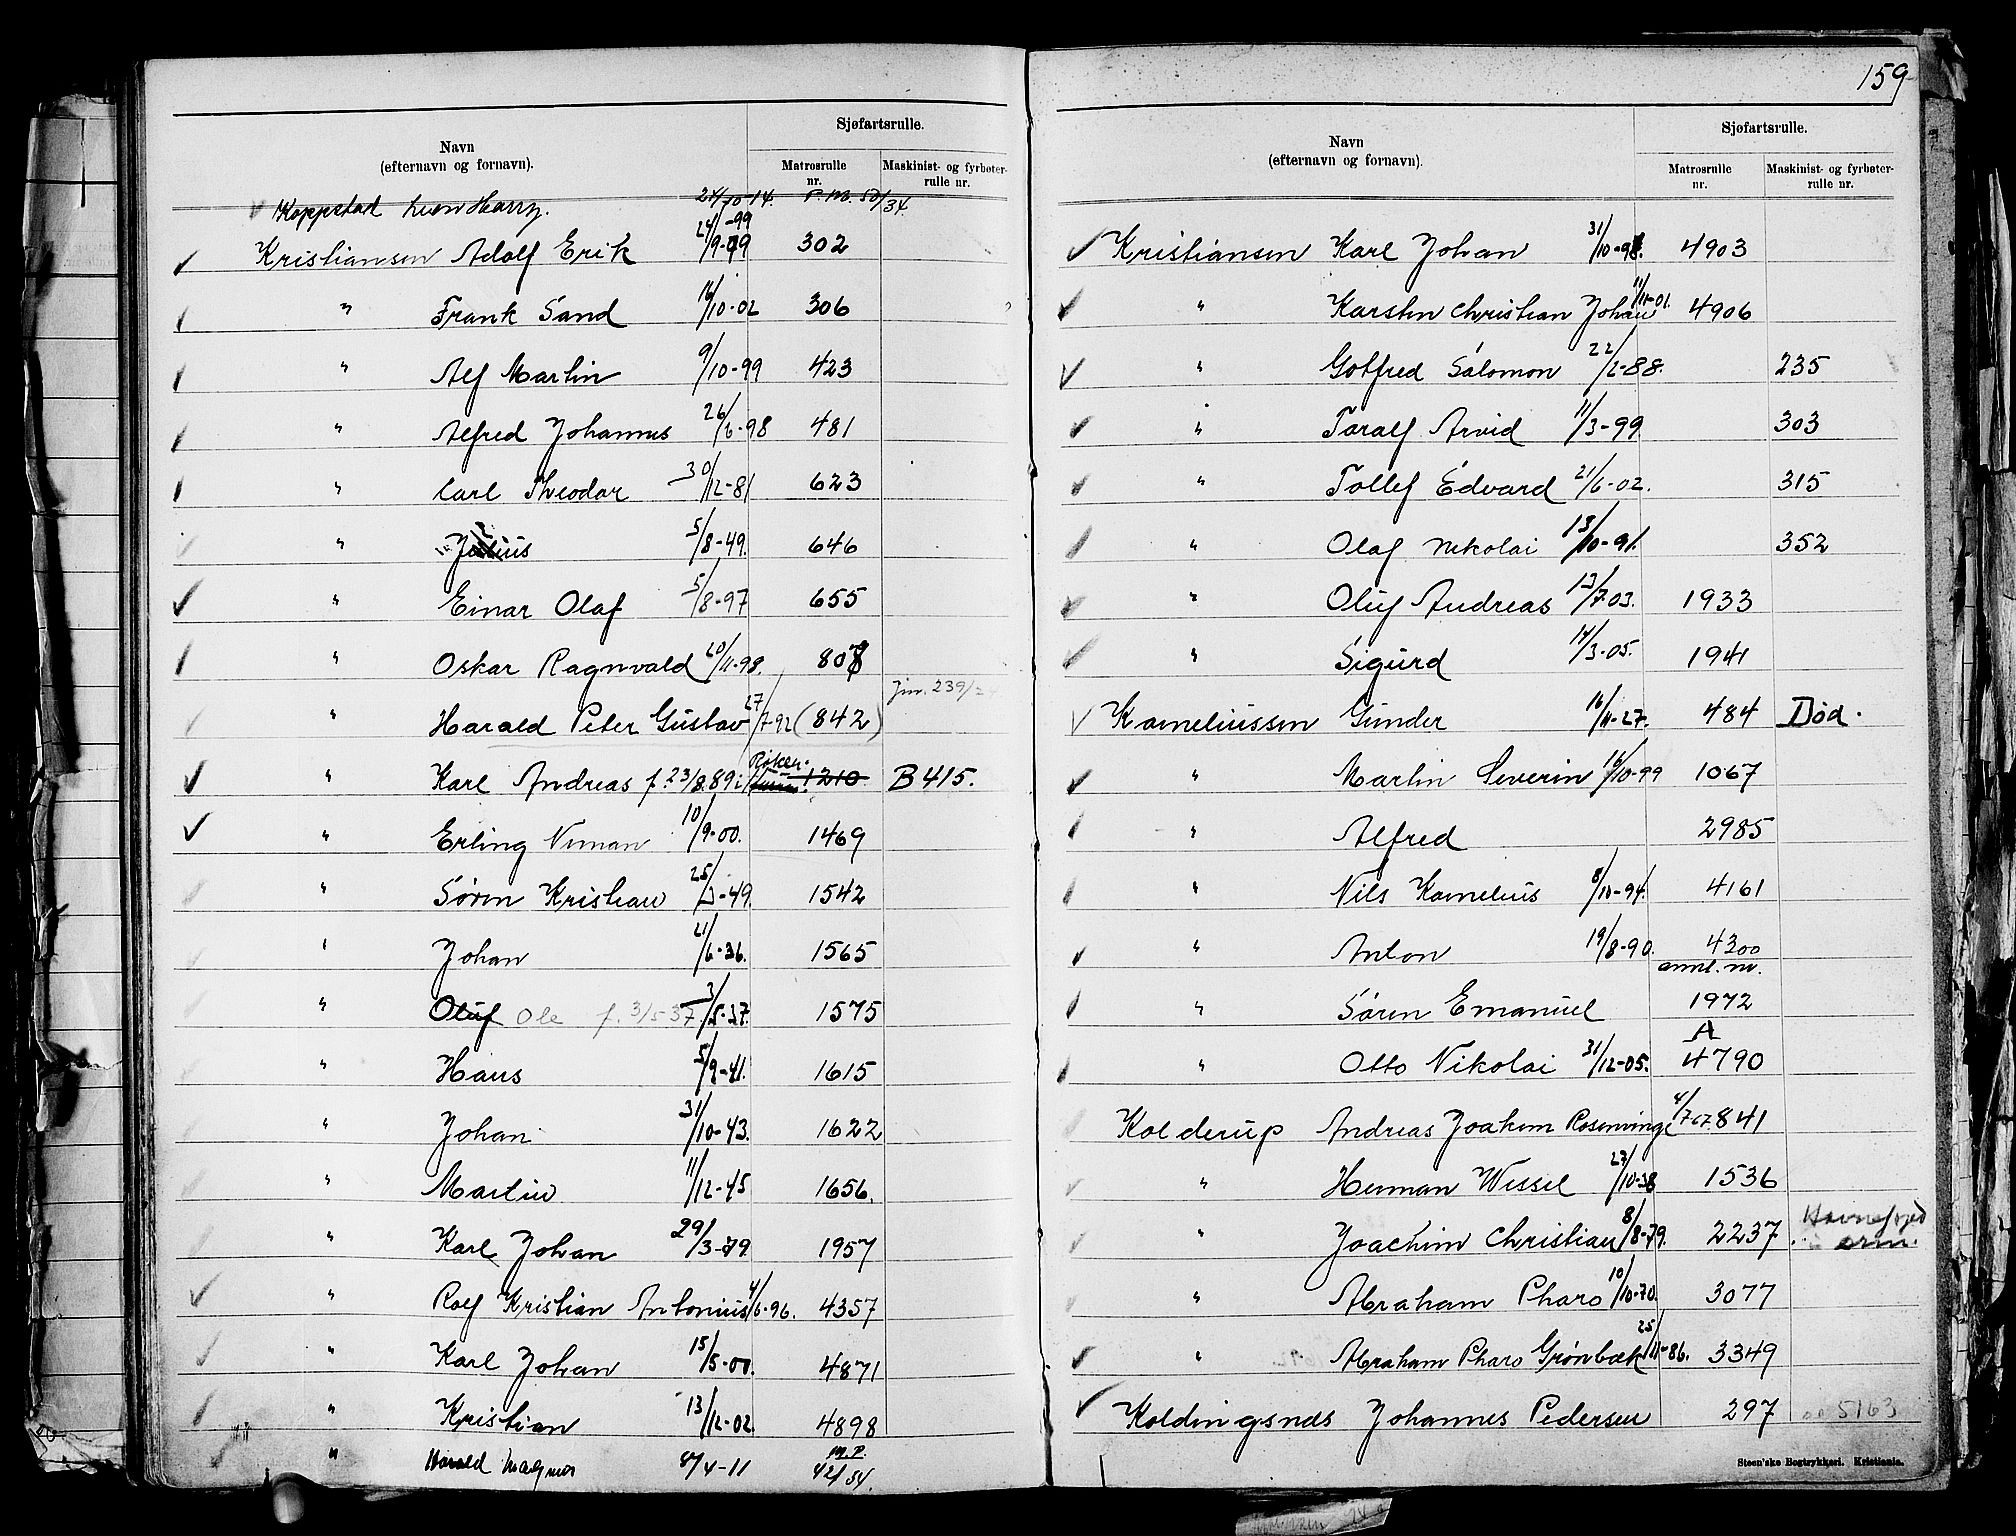 Navn
(efternavn og fornavn).
Sjøfartsrulle.
Matrosrulle nr.
Maskinist- og fyrbøter-rulle nr.
Koppstad Harry. 24/10-14. P.M. 50/34.
Kristiansen Adolf Erik 24/9-99 302
" Frank Sand 16/10-02 306
" Alf Martin 9/10-99 423
" Alfred Johannes 26/6-98 481
" Carl Theodor 30/12-81 623
" Julius 5/8-49. 646
" Einar Olaf 5/8-97 655
" Oskar Ragnvald 20/11-98. 808
" Harald Peter Gustav 27/7-92 (842) Jnr. 239/24
" Karl Andreas f. 23/8.89 i Røken. 1210 B415.
" Erling Niman 10/9-00. 1469
" Søren Kristian 25/3-49. 1542
" Johan 21/6-36. 1565
" Oluf Ole f. 3/5 37 3/5-37. 1575
" Hans 5/9-41. 1615
" Johan 31/10-43. 1622
" Martin 11/12-45 1656.
" Karl Johan 29/3-79 1957
" Rolf Kristian Antonius 4/6-96. 4357
" Karl Johan 15/5-00. 4871
" Kristian 13/12-02. 4898
" Harald Magnus /4-11 M.P. 42/34.
159
Navn
(efternavn og fornavn).
Sjøfartsrulle.
Matrosrulle nr.
Maskinist- og fyrbøter-rulle nr.
Kristiansen Karl Johan 31/10-98. 4903
" Karsten Christian Johan 11/11-01. 4906
" Gotfred Salomon 22/2-88. 235
" Toralf Arvid 11/3-99. 303
" Tollef Edvard 21/6-02. 315
" Olaf Nikolai 13/10-91. 352
" Oluf Andreas 13/7.03. 1933
" Sigurd 14/3-05. 1941
Korneliussen Gunder 16/11-27. 484 Død.
" Martin Severin 16/10-99 1067
" Alfred 2985
" Nils Kornelius 8/10-94. 4161
" Anton 19/8-90. 4300
anm. nr.
" Søren Emanuel 1972
A
" Otto Nikolai 31/12-05. 4790
Kolderup Andreas Joakim Rosenvinge 4/7 67. 841
" Herman Wessel 27/10-38 1536
" Joachim Christian 8/8-79. 2237
" Abraham Pharo 10/10-70. 3077
" Abraham Pharo Grønbæk 25/11-86. 3349
Koldingsnds Johannes Pedersen 297 5163
Steen'ske Bogtrykkeri. Kristiania.